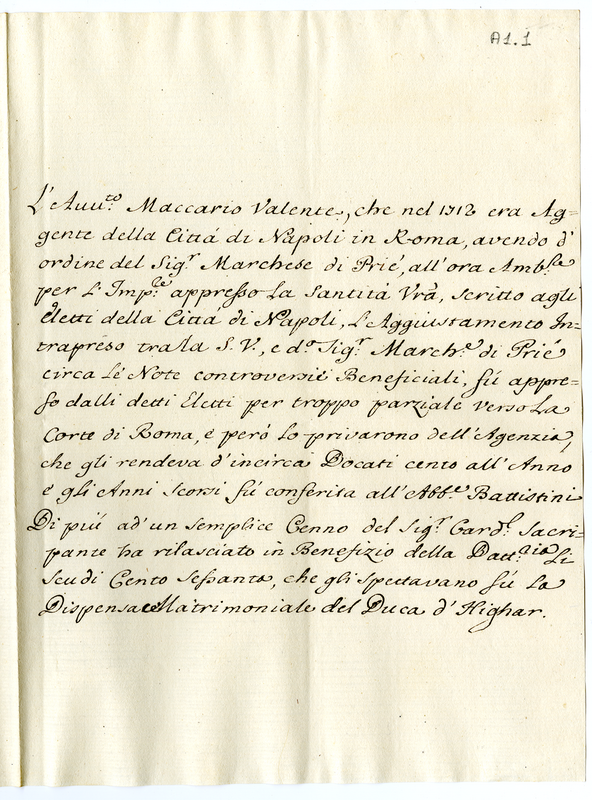 A1.1
L'Avv.to Maccario Valente, che nel 1712 era Ag=
gente della Cittá di Napoli in Roma, avendo d'
ordine del Sig.r Marchese di Prié, all'ora Amb.re
per L'Imp.re appresso La Santitá Vrã, scritto agli
Eletti della Cittá di Napoli, L'Aggiustamento In=
trapreso tra la S. V., e d.o Sig.r March.e di Prié
circa Le Note controversie Beneficiali, fú appre=
so dalli detti Eletti per troppo parziale verso La
Corte di Roma, e peró Lo privarono dell'Agenzia,
che gli rendeva d'incirca Docati cento all'Anno
e gli Anni scorsi fú conferita all'Abb.e Battistini
Di piú ad'un semplice Cenno del Sig.r Card.l Sacri=
pante ha rilasciato in Benefizio della Datt.ria Li
scudi Cento sessanta, che gli spettavano sú La
Dispensa Matrimoniale del Duca d'Highar.